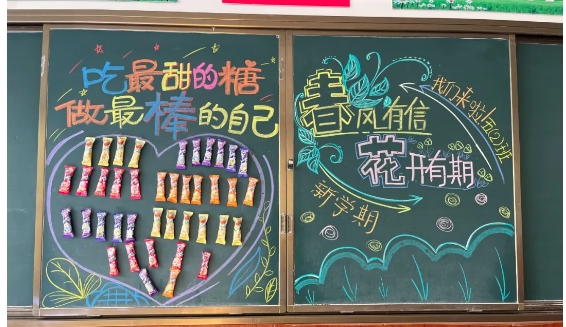 吃最甜的糖
做最棒的自己
春风有信
花开有期
我们来啦!五(2)班
新学期